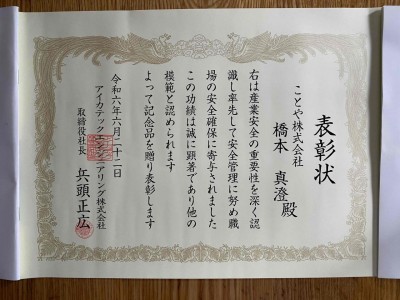 表彰状
ことや株式会社
橋本 真澄殿
右は産業安全の重要性を深く認
識し率先して安全管理に努め職
場の安全確保に寄与されました
この功績は誠に顕著であり他の
模範と認められます
よって記念品を贈り表彰します
令和六年六月二十二日
アイカテックエンジニアリング株式会社
取締役社長 兵頭正広